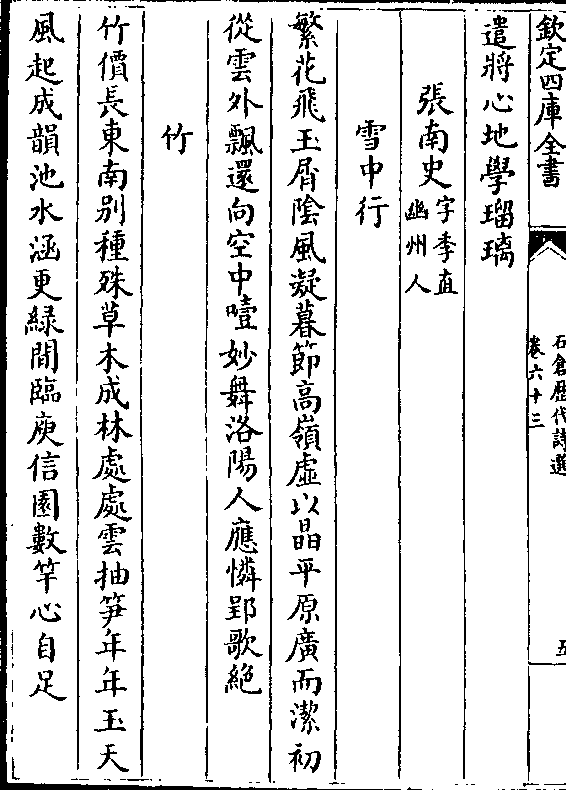 欽定四庫全書
石倉歷代詩選
卷六十三
五
遣將心地學瑠璃
張南史字季直
幽州人
雪中行
繁花飛玉屑陰風凝暮節高嶺虛以晶平原廣而潔初
從雲外飄還向空中噎妙舞洛陽人應憐郢歌絶
竹
竹價長東南别種殊草木成林處處雲抽笋年年玉天
風起成韻池水涵更緑閒臨庾信園數竿心自足